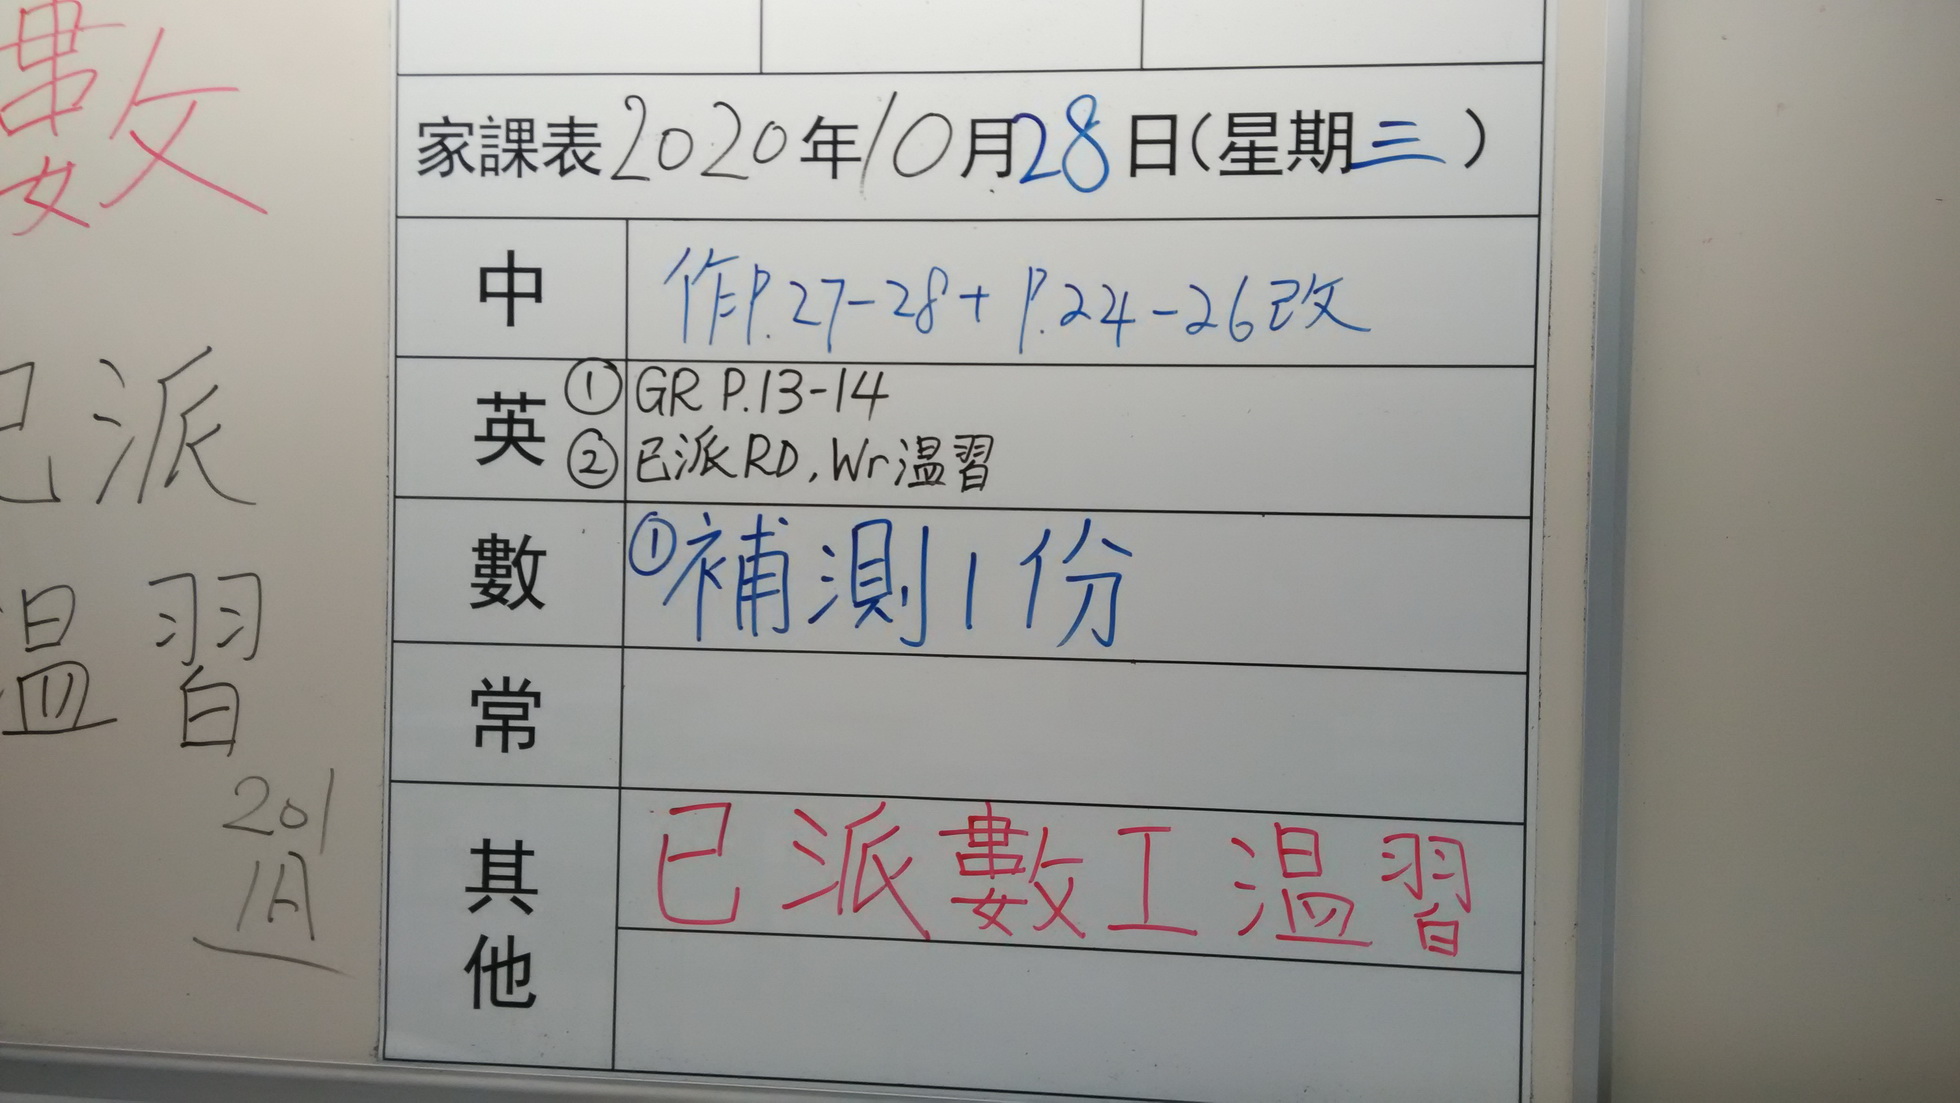 數
已派
温習
201
1A
家課表2020年10月28日(星期三)
中 作P.27-28+P.24-26改
英 ①GR P.13-14
②已派RD,Wr温習
數 ①補測1份
常
其他 已派數工温習